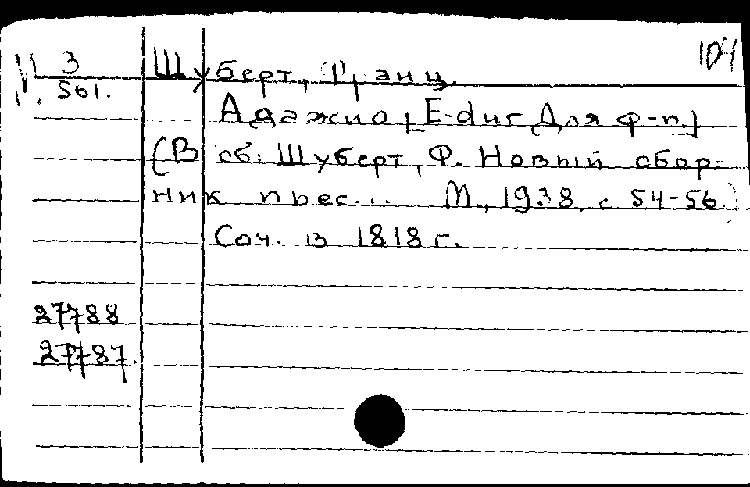 104
3
561.
Шуберт, Франц.
Адажио [E-dur Для ф-п.]
(В сб. Шуберт, Ф. Новый сбор-
ник пьес... М., 1938, с 54-56.)
Соч. в 1818 г.
27788
27787.